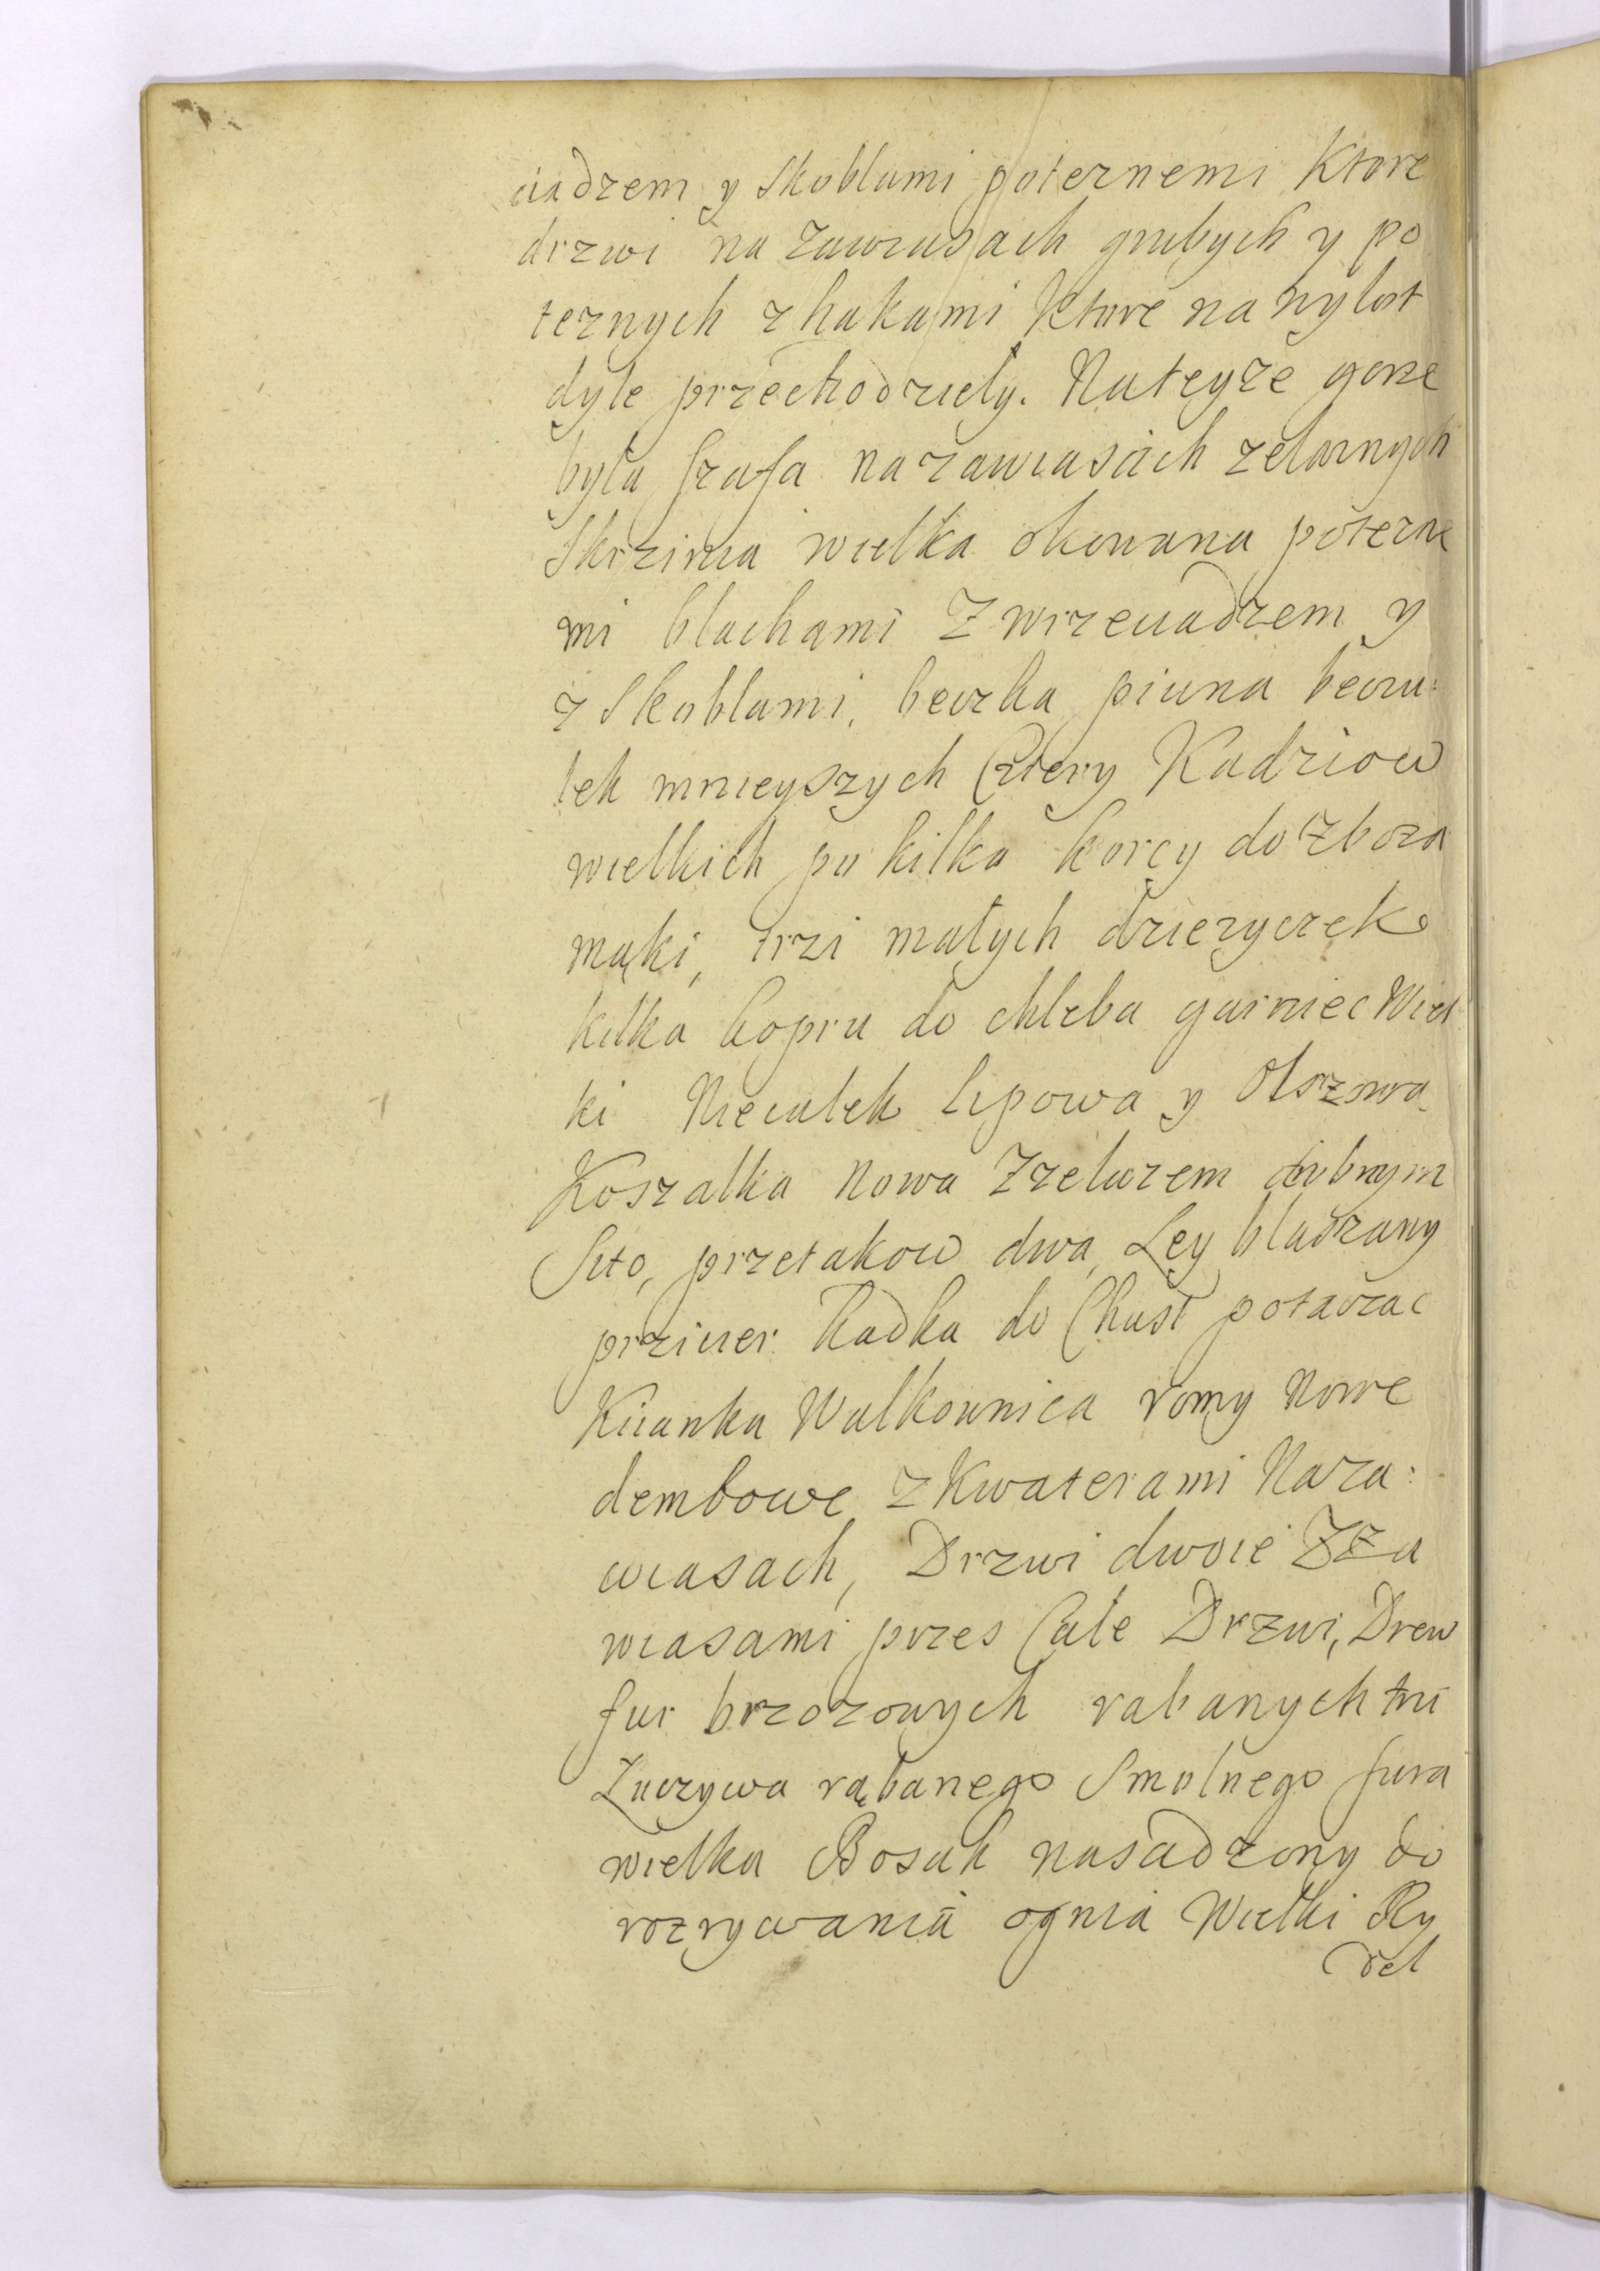 ciadzem y Skoblami poteznemi Ktore
drzwi na zawiasach grubych y po
teznych z hakami Ktore na wylot
dyle przechodziely. Na teyze gorze
była szafa na zawiasach zelaznych
Skrzinia wielka okowana potezne
mi blachami Z wrzeciadzem y
z Skoblami, beczka piwna beczu:
lek mnieyszych Cztery Kadziow
wielkich po kilka korcy do zboza
mąki, trzi małych dziezyczek
kilka kopru do chleba garniec Wiel
ki Niecułek lipowa y Olszowa
Koszałka Nowa Zzelazem drobnym
Sito, przetakow dwa, Ley blaszany
Kadka do Chust
Kiianka Walkownica ramy Nowe
dembowe z Kwaterami Naza:
wiasach, Drzwi dwoie Z Za
wiasami przes Całe Drzwi, Drew
fur brzozowych rabanych trzi
Łuczywa rąbanego Smolnego fura
wielka Bosak nasadzony do
rozrywania ognia Wielki Ry
del